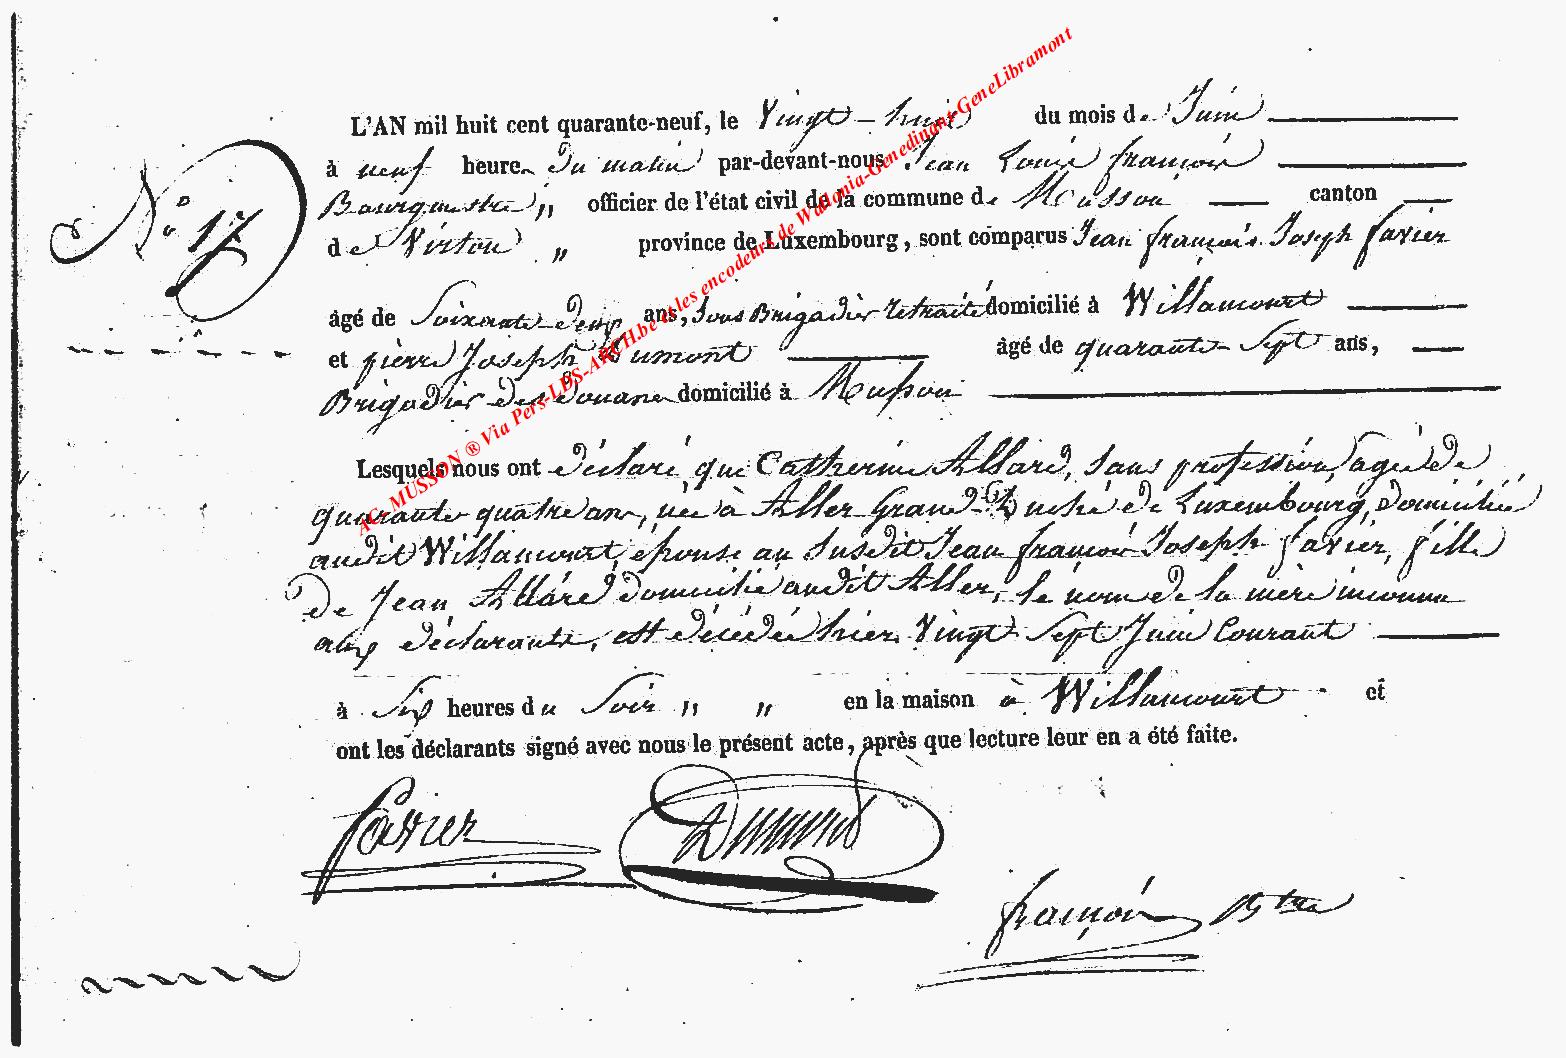 L'AN mil huit cent quarante-neuf, le Vingt-huit du mois de Juin
à neuf heures du matin par-devant-nous Jean Louis françois
Bourgmestre „ officier de l'état civil de la commune de Musson canton
N° 17
de Virton „ province de Luxembourg, sont comparus Jean françois Joseph favier
âgé de Soixante-deux ans, Sous Brigadier retraité domicilié à Willancourt
et pierre Joseph Dumont âgé de quarante-Sept ans,
Brigadier des douanes domicilié à Musson
Lesquels nous ont déclaré, que Catherine Allard, Sans profession, agée de
quarante quatre ans, née à Aller Grand-Duché de Luxembourg, domiciliée
audit Willancourt, épouse au Susdit Jean françois Joseph favier, fille
de Jean Allard domicilié audit Aller, le nom de la mère inconnu
aux déclarants, est décédée hier Vingt Sept Juin Courant
à Six heures du Soir „ „ en la maison à Willancourt et
ont les déclarants signé avec nous le présent acte, après que lecture leur en a été faite.
favier Dumont
françois Bgtre
AC-MUSSON ® Via Pers-LDS-ARCH.be et les encodeurs de Wallonia-Genedinant-GeneLibramont